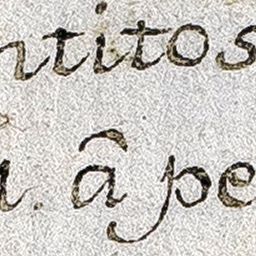 ntitos
. â pe